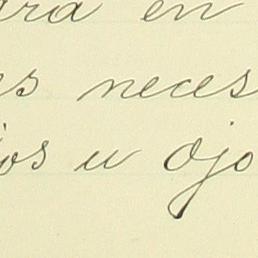 ara en
es neces
ios u ojo